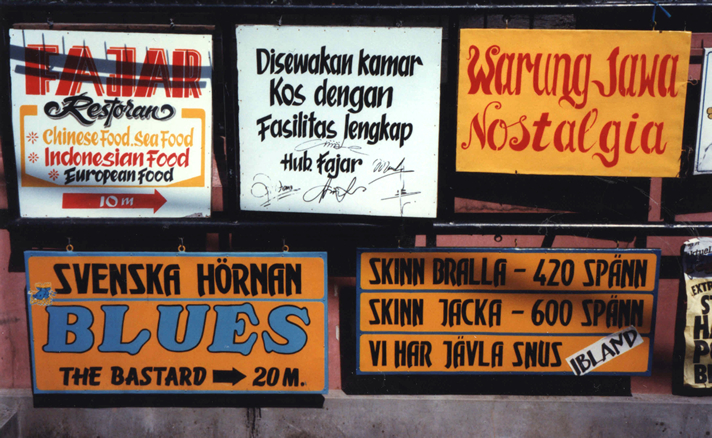 FAJAR
Restoran
* Chinese Food. sea Food
* Indonesian Food
* European Food
10 m
Disewakan kamar
Kos dengan
Fasilitas lengkap
Hub Fajar
Warung Jawa
Nostalgia
SVENSKA HÖRNAN
BLUES
THE BASTARD → 20 M.
SKINN BRALLA - 420 SPÄNN
SKINN JACKA - 600 SPÄNN
VI HAR JÄVLA SNUS IBLAND